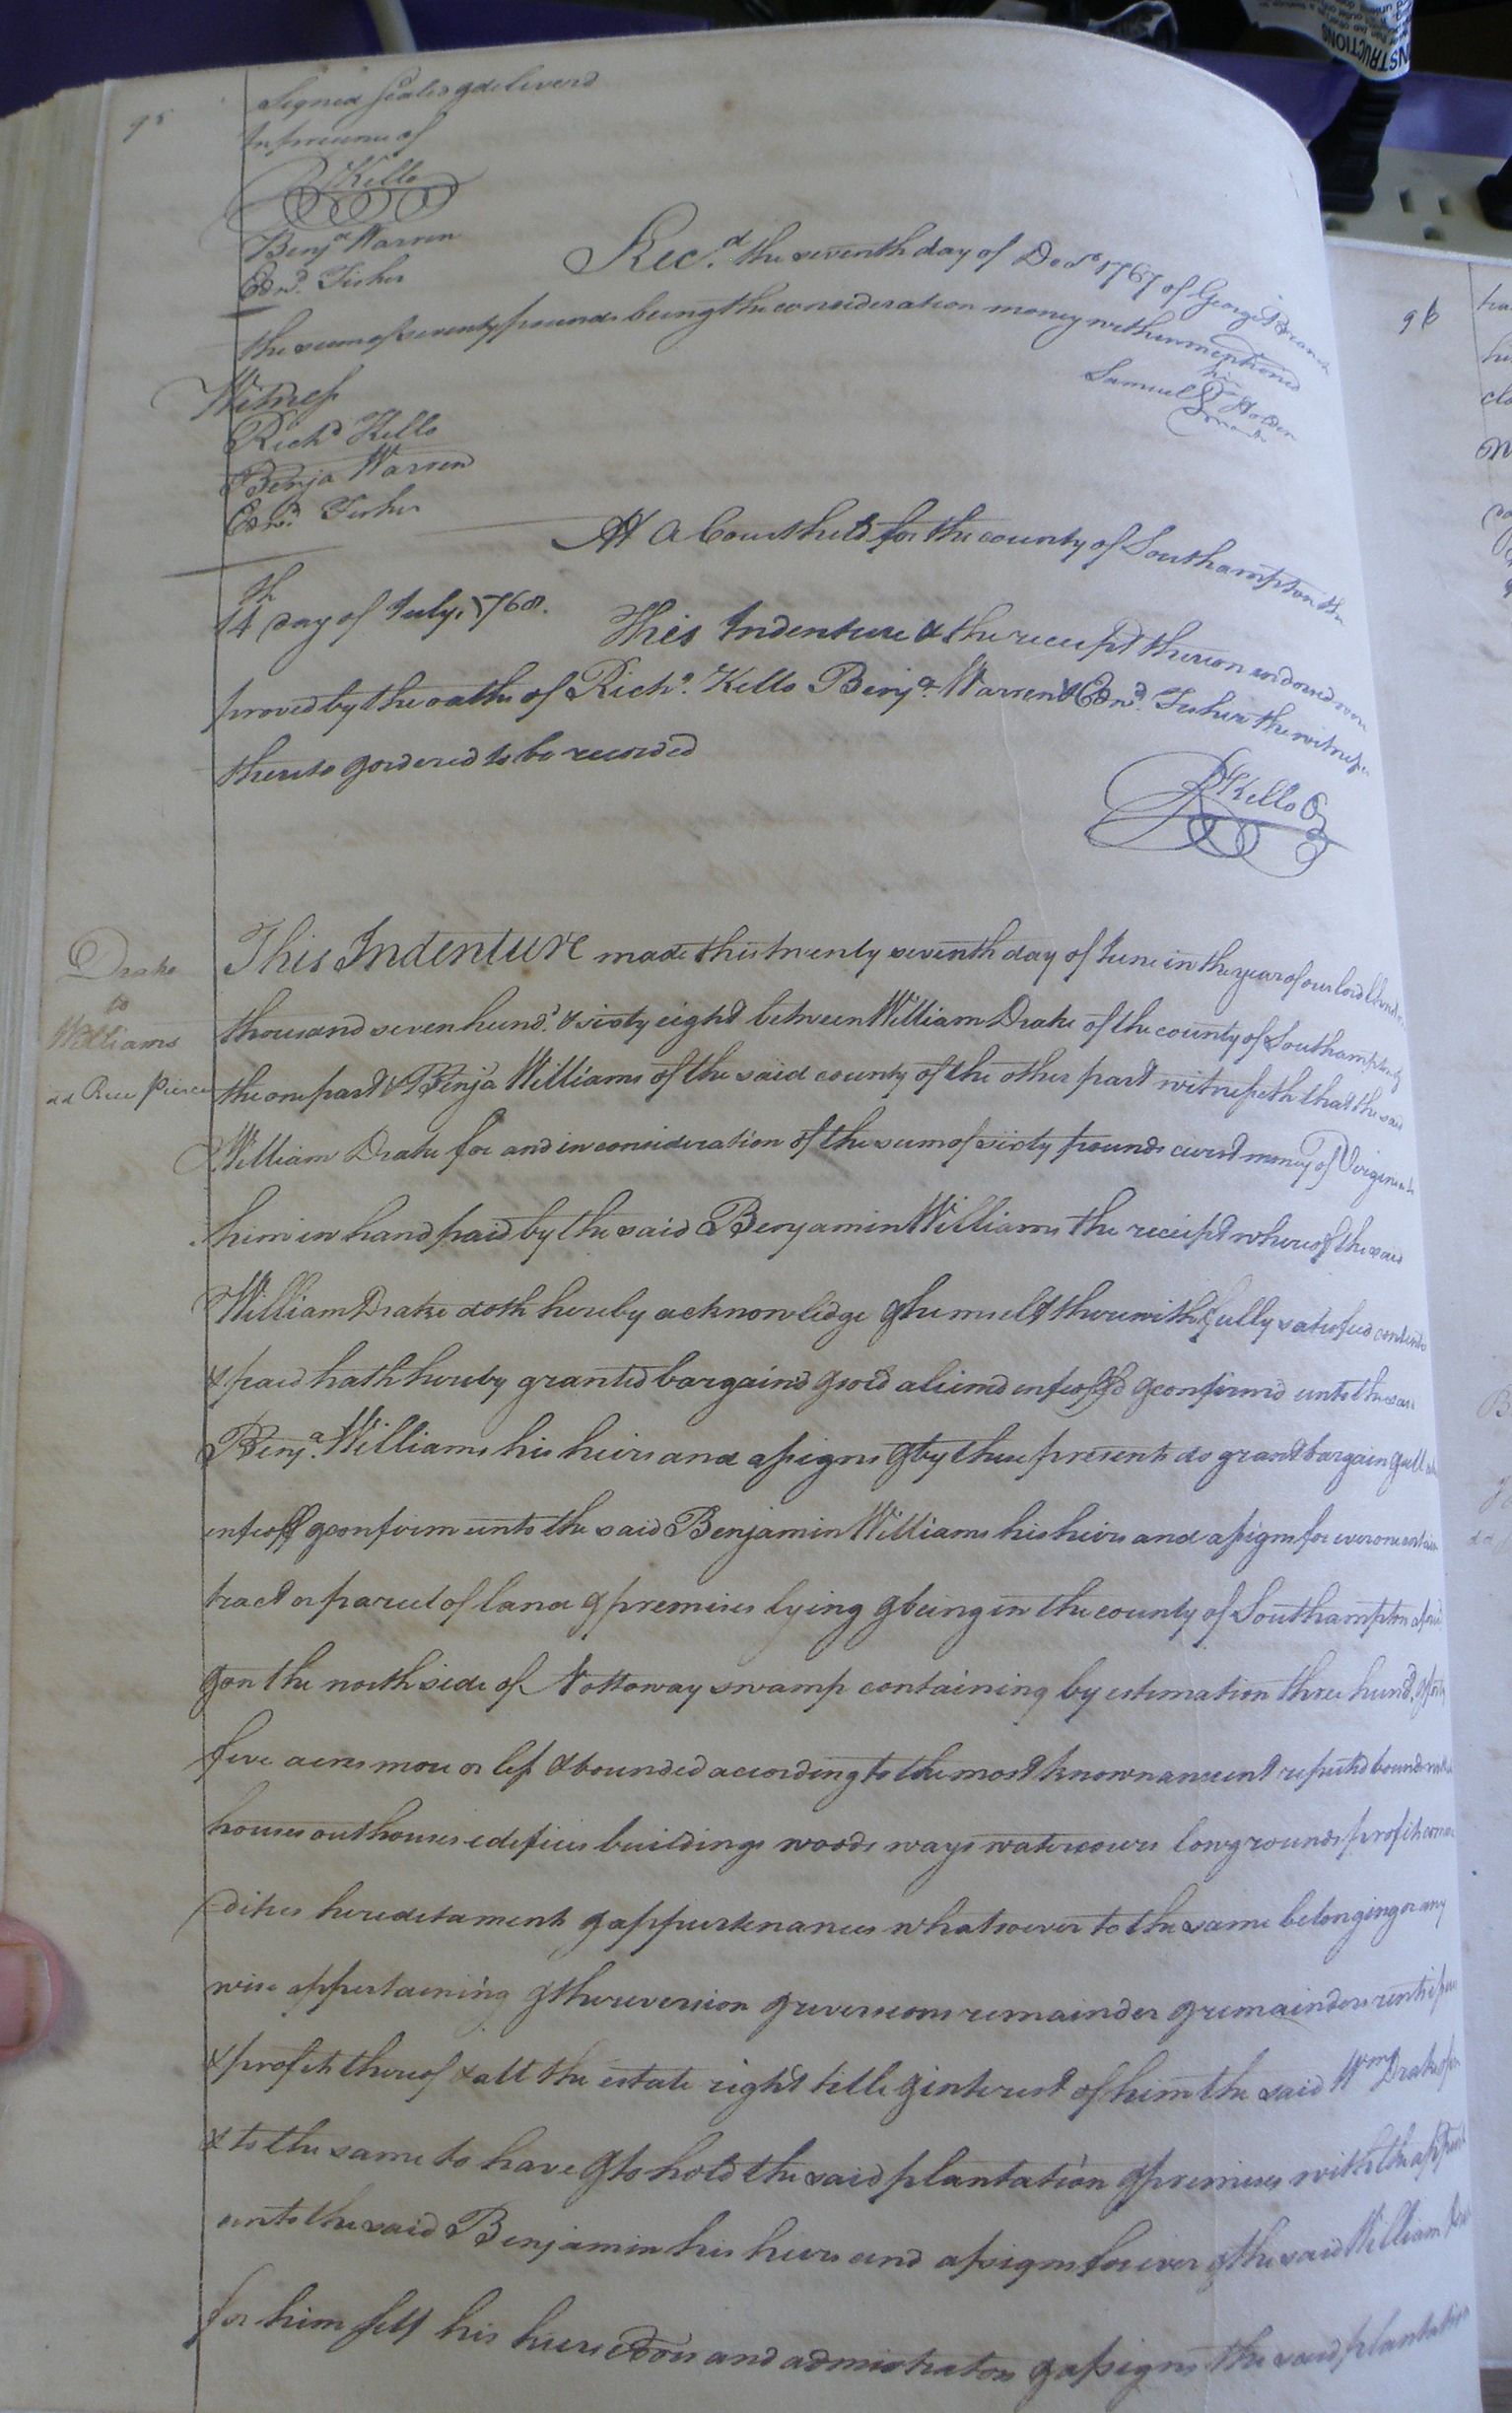 95
Signed Sealed & deliverd
In presence of
R Kello
Benja Warren
Edwd. Fisher
Rec.d the seventh day of Decr 1767 of George Branch
the sum of seventy pounds being the consideration money within mentioned
his
Samuel Holden
mark
Witness
Richd Kello
Benja Warren
Edwd. Fisher
At a Court held for the county of Southampton the
14th day of July, 1768.
This Indenture & the receipt thereon endorsed were
proved by the oaths of Richd. Kello Benja. Warren & Edwd. Fisher the witnesses
thereto & ordered to be recorded
R Kello
Drake
to
Williams
This Indenture made this twenty seventh day of June in the year of our lord
thousand seven hund.d & sixty eight between William Drake of the county of Southampton of
the one part & Benja Williams of the said county of the other part witnesseth that the said
William Drake for and in consideration of the sum of sixty pounds curt money of Virginia to
him in hand paid by the said Benjamin Williams the receipt whereof the said
William Drake doth hereby acknowledge & himself therewith fully satisfied contented
& paid hath hereby granted bargaind & sold aliend enfeoff'd & confirmd unto the said
Benja. Williams his heirs and assigns & by these presents do grant bargain & sell
enfeoff & confirm unto the said Benjamin Williams his heirs and assigns for ever one certain
tract or parcel of land & premises lying & being in the county of Southampton
& on the north side of Nottoway swamp containing by estimation three hund.d &
five acres more or less & bounded according to the most known ancient reputed bounds
houses outhouses edifices buildings woods ways watercourses low grounds profits commo
dities hereditaments & appurtenances whatsoever to the same belonging or any
wise appertaining & the reversion & reversions remainder & remainders rents
& profits thereof & all the estate right title & interest of him the said Wm Drake of in
& to the same to have & to hold the said plantation & premises with the
unto the said Benjamin his heirs and assigns forever & the said William Drake
for him self his heirs Exors and admistrators & assigns the said plantation
96